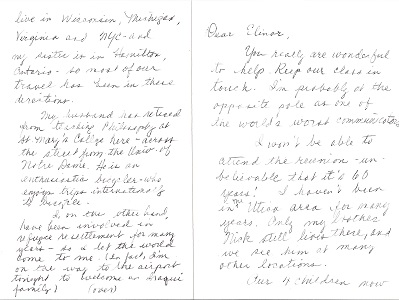 Dear Elinor,
You really are wonderful
to help. Keep our class in
touch. I'm probably at the
opposite pole as one of
the world's worst communicators
I won't be able to
attend the reunion - un-
believable that it's 60
years! I haven't been
in Utica area for many
years. Only my brother
Nick still lives there, and
we see him at many
other locations.
Our 4 children now
live in Wisconsin, Michigan,
Virginia and NYC - and
my sister is in Hamilton,
Ontario - so most of our
travel has been in these
directions.
My husband has retired
from teaching Philosophy at
St. Mary's College here - across
the street from the Univ. of
Notre Dame. He is an
enthusiastic bicycler - who
enjoys trips internationally
to bicycle.
I, on the other hand,
have been involved in
refugee resettlement for many
years - so I let the world
come to me. (In fact, I'm
on the way to the airport
tonight to welcome an Iraqui
family.) (over)